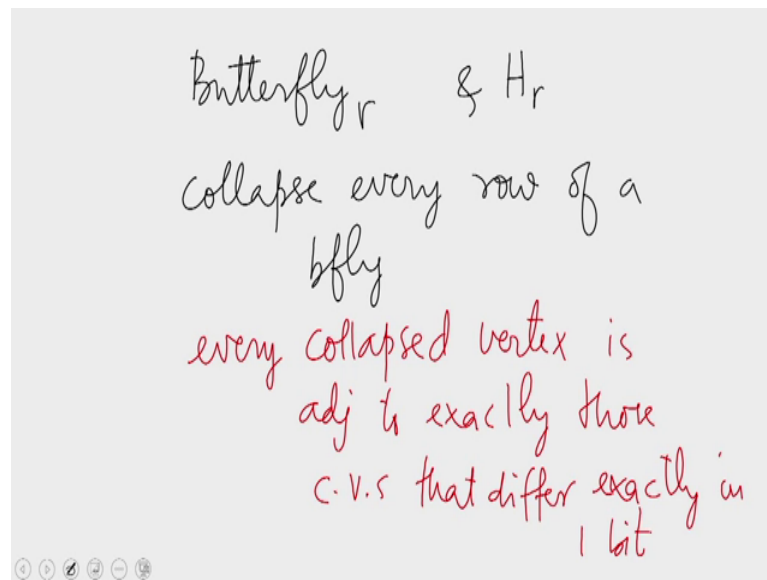 Butterfly r & Hr
collapse every row of a
bfly
every collapsed vertex is
adj to exactly those
c.v.s that differ exactly in
1 bit